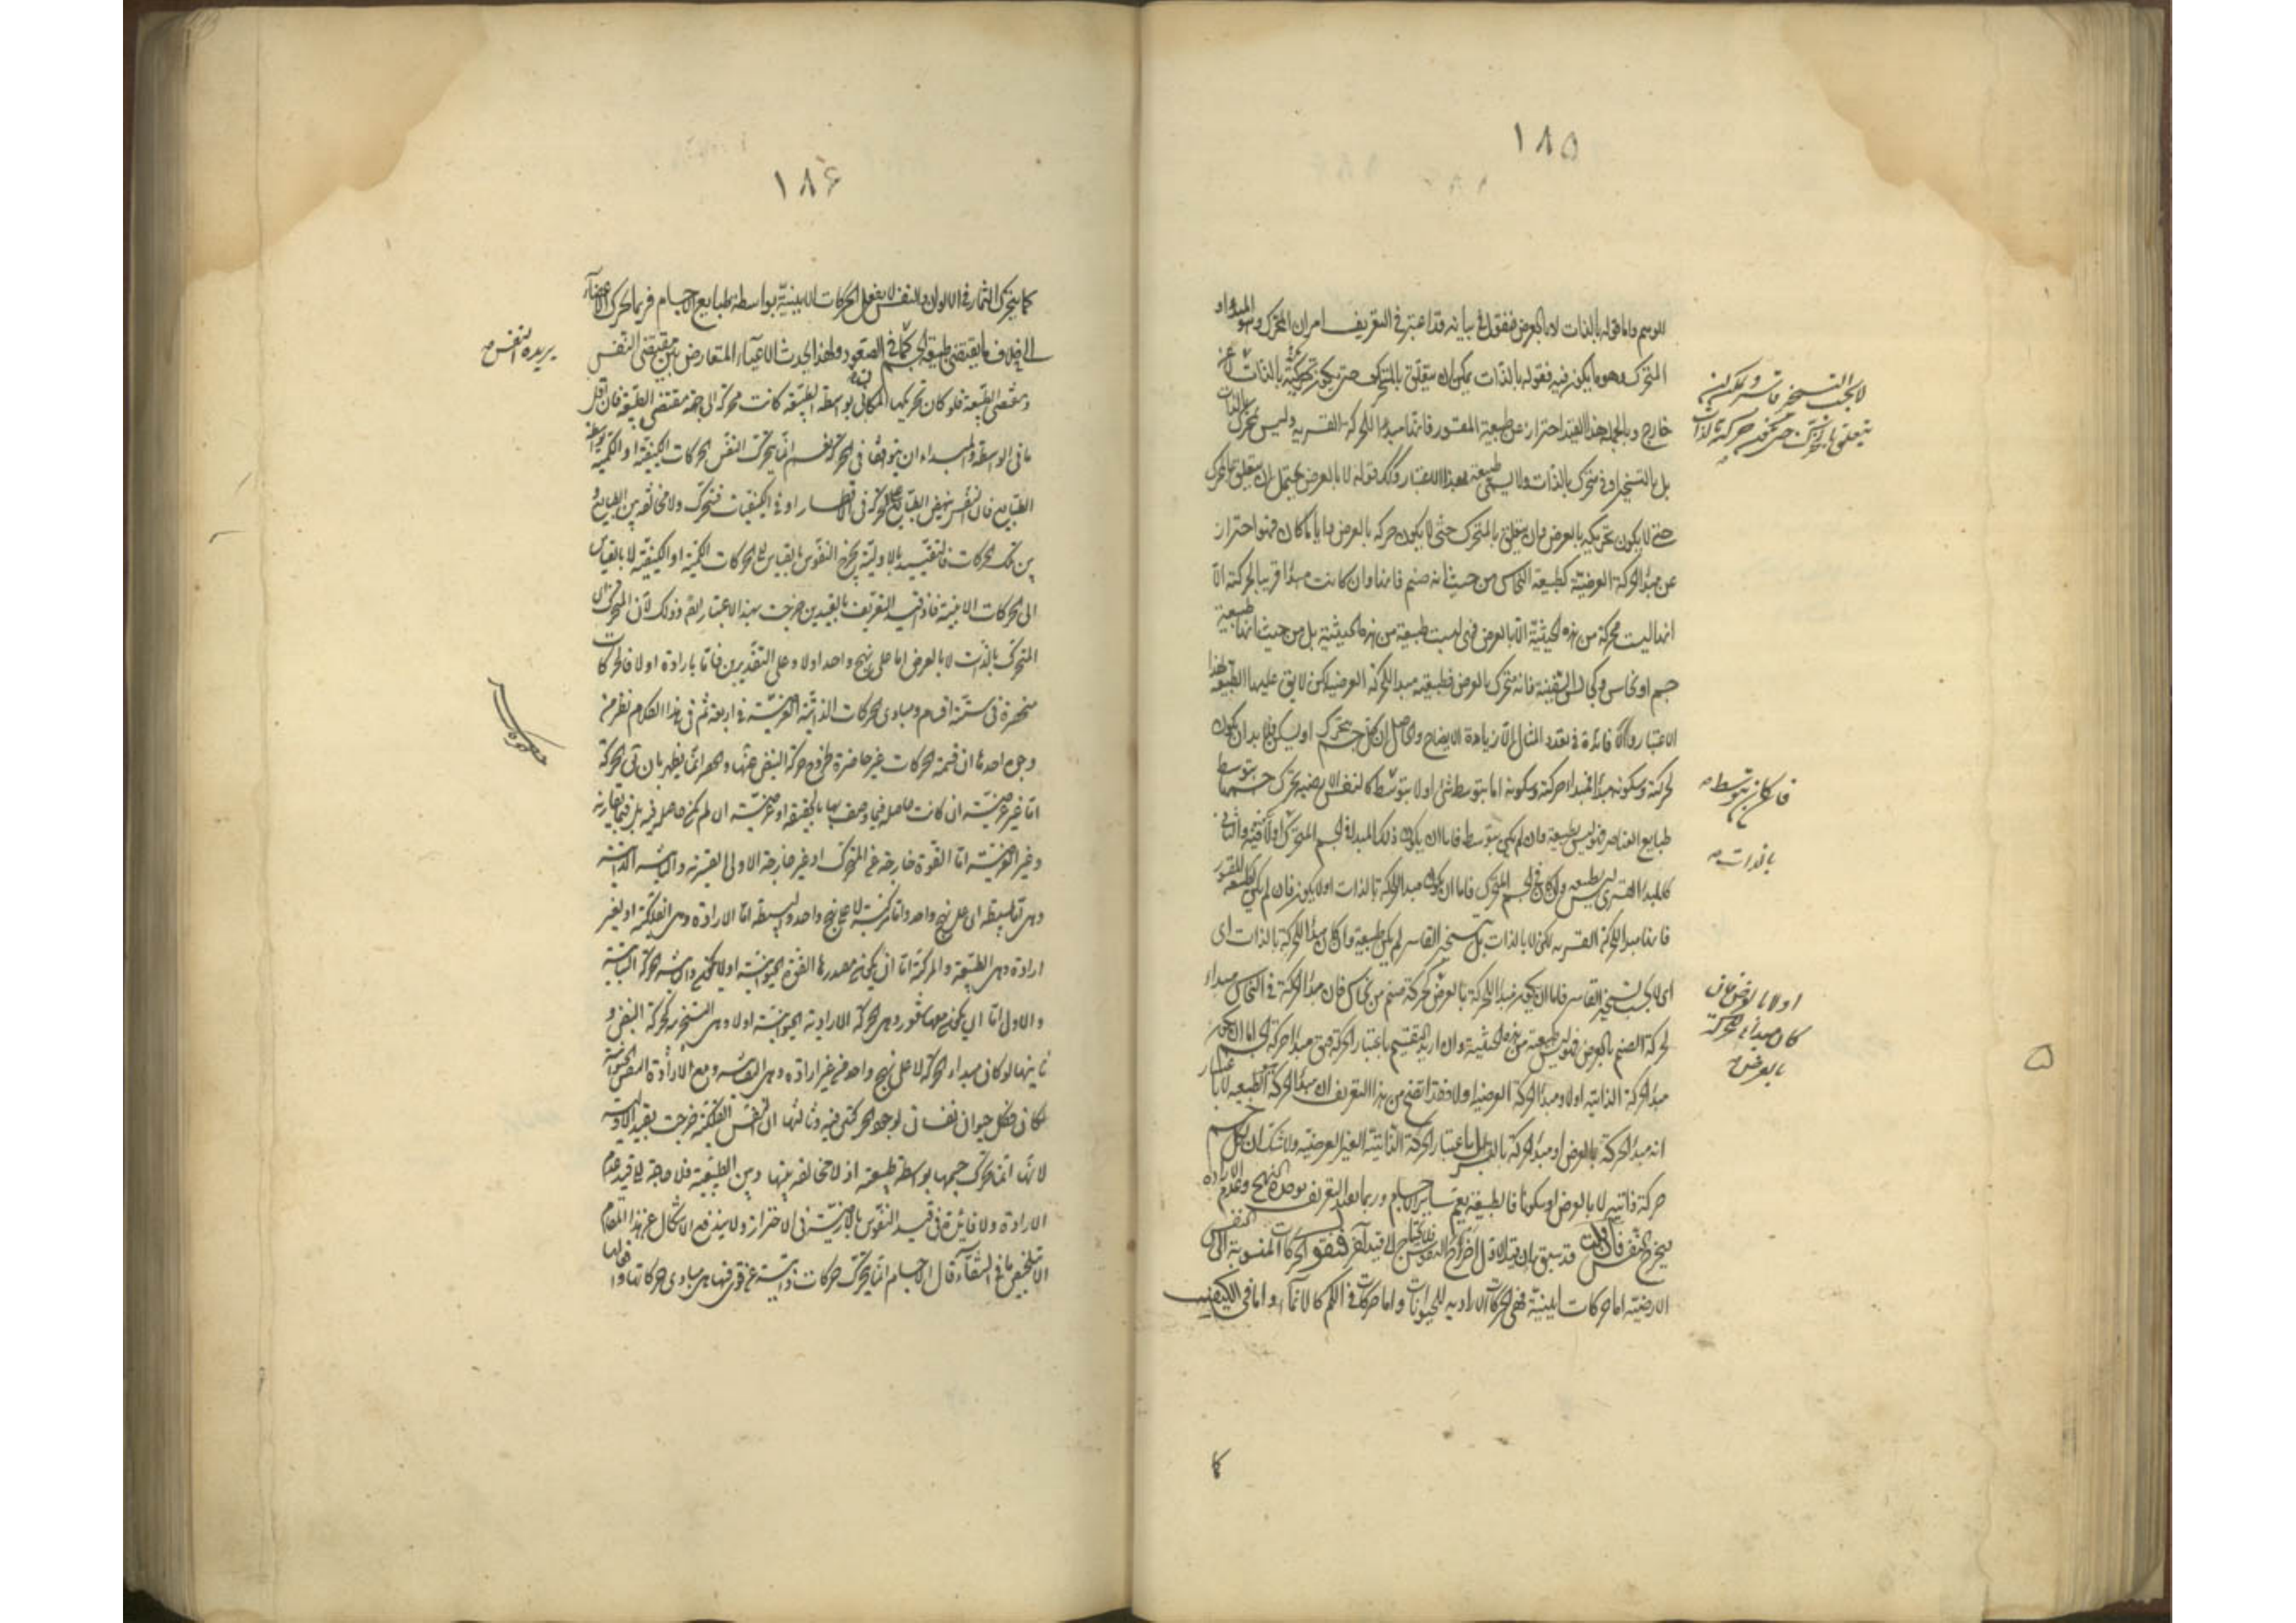 ١٨٥
للوسم واما قوله بالذات لا بالعرض فنقول في بيانه قد اعتبر في التعريف امران المحرك وهو المبداء و
المتحرك وهو ما يكون فيه فقوله بالذات يمكن ان يتعلق بالمحرك حتى يكون تحريكه بالذات لا عن
خارج وبالجملة هذا القيد احتراز عن طبيعة المقسور فانها مبدا للحركة القسرية وليس تحرك بالذات
بل بالتسخير او في متحرك بالذات ولا يسمى طبيعة بهذا الاعتبار وكذلك قوله لا بالعرض يحتمل ان يتعلق بالمحرك
حتى لا يكون تحريكه بالعرض وان يتعلق بالمتحرك حتى لا يكون حركة بالعرض وايا ما كان فهو احتراز
عن مبدأ الحركة العرضية كطبيعة النحاس من حيث انه صنم فانها وان كانت مبدأ قريبا لحركته الا
انها ليست محركة من هذه الحيثية الا بالعرض فهي ليست طبيعة من هذه الحيثية بل من حيث انها طبيعة
جسم او نحاس وكجالس السفينة فانه متحرك بالعرض فطبيعته مبدا للحركة العرضية لكن لا يق عليها الطبيعة بهذا
الاعتبار والا فائدة في تعدد المثال الا زيادة الايضاح والحاصل ان كل جسم يتحرك او يسكن فلا بد ان يكون
لحركته وسكونه مبدأ فمبدا حركته وسكونه اما بتوسط شئ او لا بتوسط كالنفس الارضية يحرك جسمها بتوسط
طبايع العناصر فليس بطبيعة وان لم يكن بتوسط فاما ان يكون ذلك المبدا في الجسم المتحرك اولا فيه والثاني
كالمبدأ القسرى ليس بطبيعة وان كان في الجسم المتحرك فاما ان يكون مبدا للحركة بالذات اولا يكون فان لم يكن كطبيعة المقسور
فانها مبدا للحركة القسرية لكن لا بالذات بل بتسخير القاسر لم يكن طبيعة وان كان مبدأ للحركة بالذات اى
اى لا بحسب تسخير القاسر فاما ان يكون مبدأ للحركة بالعرض كحركة صنم من نحاس فان مبدأ الحركة في النحاس مبداء
لحركة الصنم بالعرض فليس طبيعة من هذه الحيثية وان اريد التقسيم باعتبار الحركة فمتى مبدأ حركة الجسم اما ان يكون
مبدأ لحركته الذاتية اولا ومبدأ الحركة العرضية اولا وقد اتضح من هذا التعريف ان مبدأ الحركة الطبيعة لا باعتبار
انه مبدأ الحركة بالعرض او مبدأ الحركة بالقسر بل باعتبار الحركة الذاتية الغير العرضية ولا شك ان لكل جسم
حركة ذاتية لا بالعرض او سكونا فالطبيعة يعم ساير الاجسام وربما يقيد التعريف بوحدة النهج وعدم الارادة
فيخرج النفس فان قلت قد سبق ان قيد الاول اخراج النفوس فلا يحتاج الى قيد آخر فنقول الحركات المنسوبة الى النفس
الارضية اما حركات اينية فهي الحركات الارادية للحيوانات واما حركات في الكم كالانماء واما في الكيف
كا
لا بحسب التسخير قاسر ويمكن ان
يتعلق بالمتحرك حتى يكون حركته بالذات
فان كان بتوسط
بالذات
اولا بالعرض فان
كان مبدأ للحركة
بالعرض
١٨۶
كما يتحرك الثمار في الالوان والنفس لا يفعل الحركات الاينية بواسطة طبايع الاجسام فربما تحرك الاعضاء
الى خلاف ما يقتضى طبيعة الجسم كما في الصعود ولهذا يحدث الاعياء المتعارض بين مقتضى النفس
ومقتضى الطبيعة فلو كان تحريكها المكانى بواسطة الطبيعة كانت محركة الى جهة مقتضى الطبيعة فان قل
ما في الواسطة والمبداء ان يتوافقا في الحركة نعم انما يتحرك النفس الحركات الكيفية او الكمية بواسطة
الطبايع فان النفس ينهض الطبايع للحركة في الاقطار او في الكيفيات فتتحرك ولا مخالفة بين الطبايع و
بين تلك الحركات فالتقييد بالاولية يخرج النفوس بالقياس الى الحركات الكمية او الكيفية لا بالقياس
الى الحركات الاينية فاذا قيد التعريف بالقيدين خرجت بهذا الاعتبار ايضا وذلك لان المتحرك ان
المتحرك بالذات لا بالعرض اما على نهج واحد اولا وعلى التقديرين فاما بارادة اولا فالحركات
منحصرة في ستة اقسام ومبادى الحركات الذاتية الغير العرضية في اربعة ثم في هذا الكلام نظر من
وجوه احدها ان قسمة الحركات غير حاصرة لخروج حركة النبض عنها والحصر انما يظهر بان ق الحركة
اما غير عرضية ان كانت حاصلة فيما وصف بها بالحقيقة او عرضية ان لم يكن حاصلة فيه بل فيما يقارنه
وغير العرضية اما القوة خارجة عن المتحرك او غير خارجة الاولى القسرية والثانية الذاتية
وهى اما بسيطة اى على نهج واحد واما مركبة لا على نهج واحد والبسيطة اما الارادة وهى الفلكية او بغير
ارادة وهى الطبيعة والمركبة اما ان يكون مصدرها القوة الحيوانية او لا يكون والثانية الحركة النباتية
والاول اما ان يكون معها شعور وهى الحركة الارادية الحيوانية اولا وهى التسخيرية كحركة النبض و
ثانيها لو كان مبداء الحركة لا على نهج واحد من غير ارادة وهى النباتية ومع الارادة النفس الحيوانية
لكان لكل حيوان نفسان لوجود الحركتين فيه وثالثها ان النفس الفلكية خرجت بقيد الاولية
لانها انما تحرك جسمها بواسطة طبيعة اذ لا مخالفة بينها وبين الطبيعة فلا حاجة الى قيد عدم
الارادة ولا فائدة في قيد النفوس بالارضية في الاحتراز ولا يندفع الاشكال عن هذا المقام
الا بتلخيص ما في الشفاء قال الاجسام انما يتحرك حركات ذاتية عن قوى فيها هى مبادى حركاتها وافعالها
يريده النفس